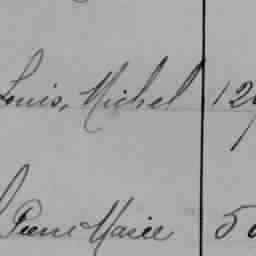 Louis, Michel 12
Pierre Marie 5